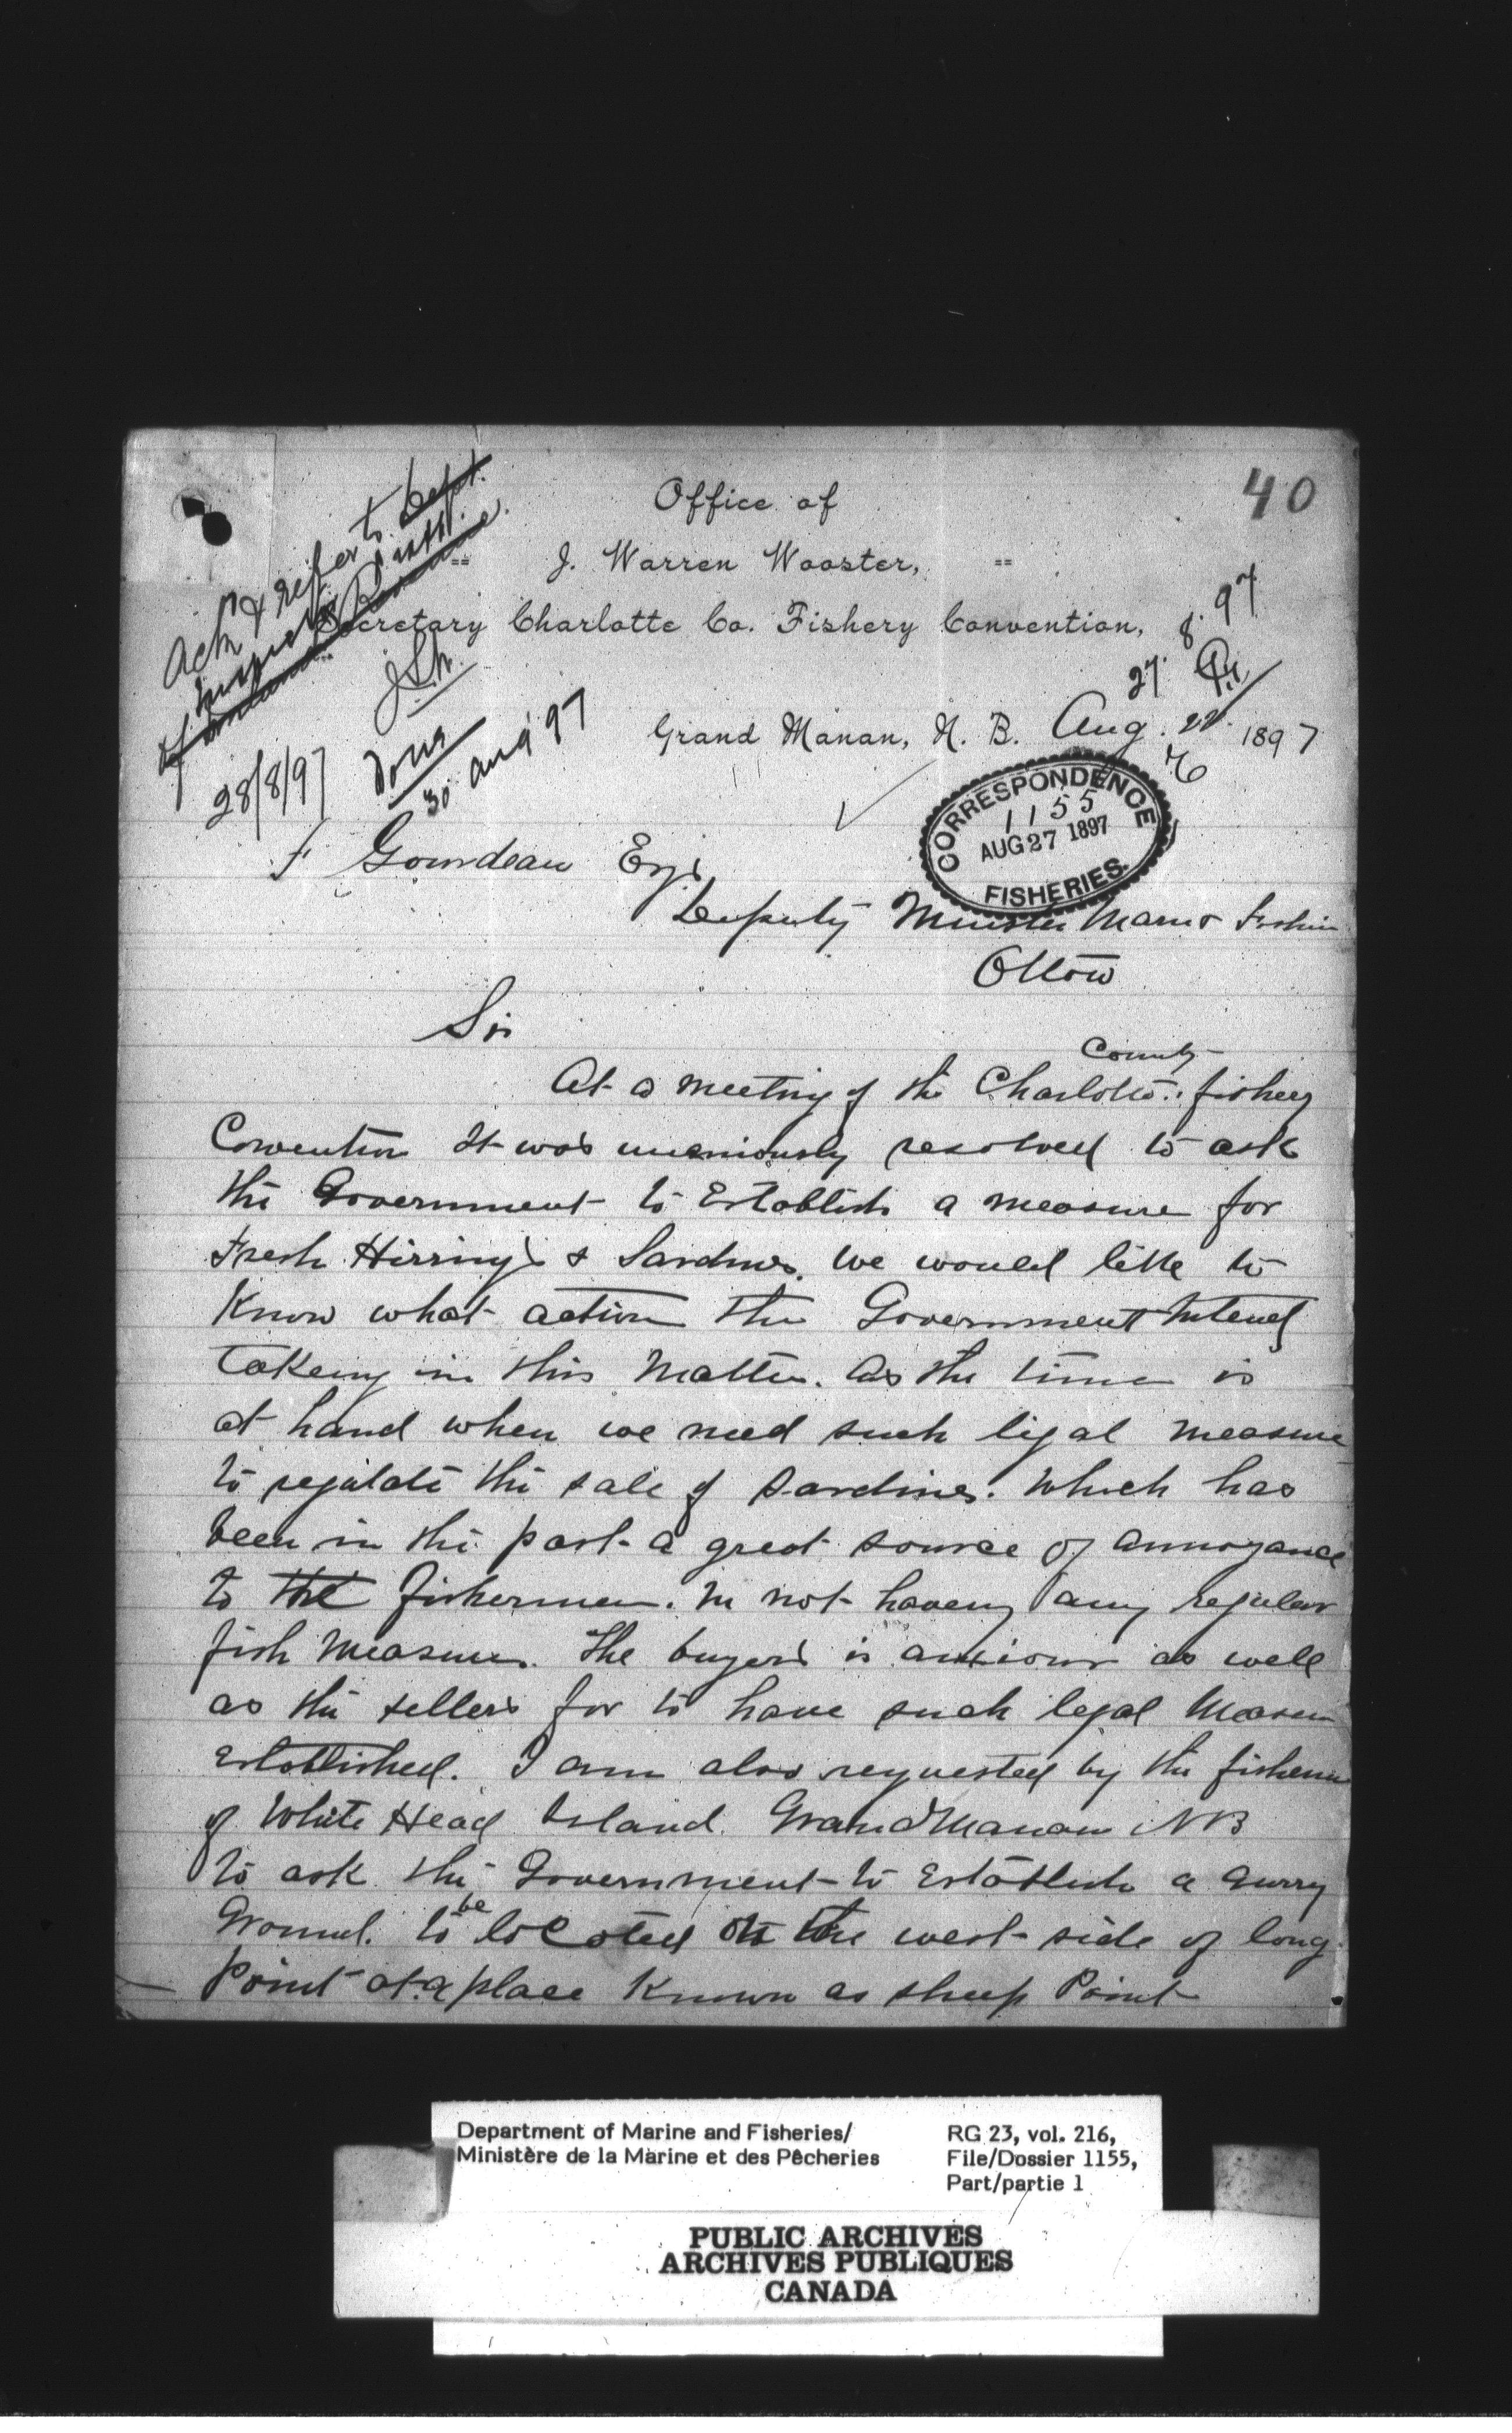 40
Office of
J. Warren Wooster,
Secretary Charlotte Co. Fishery Convention,
Ack & refer to Dept.
Inspector Pratt.
of Inland Revenue.
28/8/97
Done
30 Aug '97
27. 8. 97
Grand Manan, N. B. Aug. 22 1897
CORRESPONDENCE
1155
AUG 27 1897
FISHERIES.
F Gourdeau Esqr
Deputy Minister Marine & Fisherie
Ottow
Sir
County
At a meeting of the Charlotte fishery
Convention It was unaniously resolved to ask
the Government to Establish a measure for
Fresh Hirring's & Sardines. We would like to
Know what action the Government Intend
Takeing in this Matter. As the time is
at hand when we need such ligal measure
to regulate the sale of Sardines. Which has
been in the past a great source of annoyance
to the fishermen. In not haveing any regular
fish measure. The buyers is anxious as well
as the sellers for to have such legal Measure
Established. I am also requested by the fishermen
of White Head Island. Grand Manan NB
to ask the Government to Establish a Gurry
Ground. to be located on the west side of long
Point at a place Known as sheep Point
Department of Marine and Fisheries/
Ministère de la Marine et des Pêcheries
RG 23, vol. 216,
File/Dossier 1155,
Part/partie 1
PUBLIC ARCHIVES
ARCHIVES PUBLIQUES
CANADA